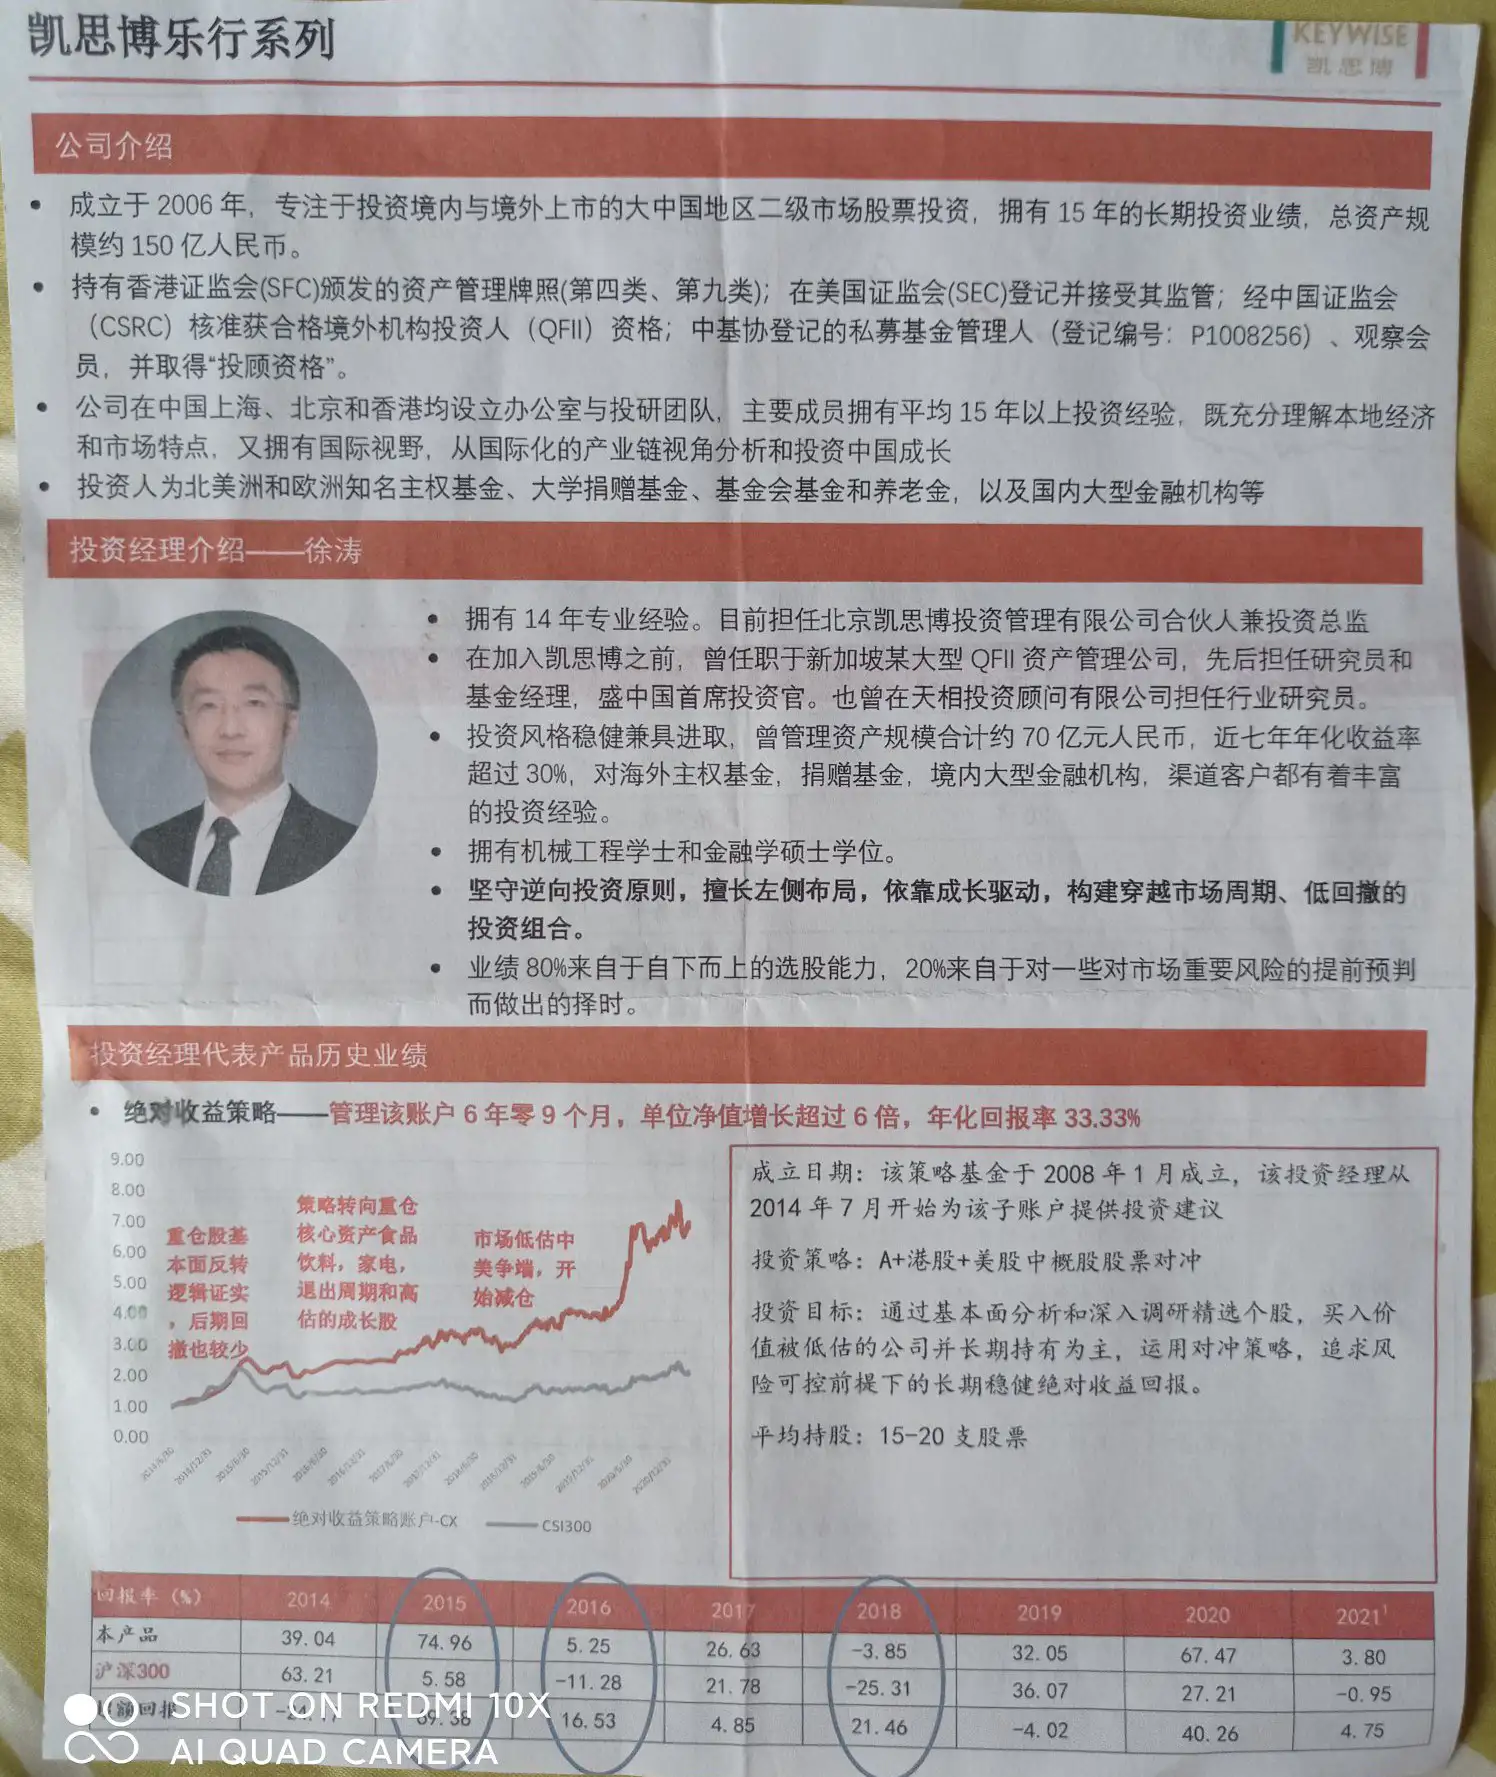 凯思博乐行系列
KEYWISE
凯思博
公司介绍
• 成立于 2006 年，专注于投资境内与境外上市的大中国地区二级市场股票投资，拥有 15 年的长期投资业绩，总资产规
模约 150 亿人民币。
• 持有香港证监会(SFC)颁发的资产管理牌照(第四类、第九类)；在美国证监会(SEC)登记并接受其监管；经中国证监会
（CSRC）核准获合格境外机构投资人（QFII）资格；中基协登记的私募基金管理人（登记编号：P1008256）、观察会
员，并取得“投顾资格”。
• 公司在中国上海、北京和香港均设立办公室与投研团队，主要成员拥有平均 15 年以上投资经验，既充分理解本地经济
和市场特点，又拥有国际视野，从国际化的产业链视角分析和投资中国成长
• 投资人为北美洲和欧洲知名主权基金、大学捐赠基金、基金会基金和养老金，以及国内大型金融机构等
投资经理介绍——徐涛
• 拥有 14 年专业经验。目前担任北京凯思博投资管理有限公司合伙人兼投资总监
• 在加入凯思博之前，曾任职于新加坡某大型 QFII 资产管理公司，先后担任研究员和
基金经理，盛中国首席投资官。也曾在天相投资顾问有限公司担任行业研究员。
• 投资风格稳健兼具进取，曾管理资产规模合计约 70 亿元人民币，近七年年化收益率
超过 30%，对海外主权基金，捐赠基金，境内大型金融机构，渠道客户都有着丰富
的投资经验。
• 拥有机械工程学士和金融学硕士学位。
• 坚守逆向投资原则，擅长左侧布局，依靠成长驱动，构建穿越市场周期、低回撤的
投资组合。
• 业绩 80%来自于自下而上的选股能力，20%来自于对一些对市场重要风险的提前预判
而做出的择时。
投资经理代表产品历史业绩
• 绝对收益策略——管理该账户 6 年零 9 个月，单位净值增长超过 6 倍，年化回报率 33.33%
9.00
8.00
7.00
6.00
5.00
4.00
3.00
2.00
1.00
0.00
重仓股基
本面反转
逻辑证实
，后期回
撤也较少
策略转向重仓
核心资产食品
饮料，家电，
退出周期和高
估的成长股
市场低估中
美争端，开
始减仓
2014/6/30 2014/12/31 2015/6/30 2015/12/31 2016/6/30 2016/12/31 2017/6/30 2017/12/31 2018/6/30 2018/12/31 2019/6/30 2019/12/31 2020/6/30 2020/12/31
绝对收益策略账户-CX CSI300
成立日期：该策略基金于 2008 年 1 月成立，该投资经理从
2014 年 7 月开始为该子账户提供投资建议
投资策略：A+港股+美股中概股股票对冲
投资目标：通过基本面分析和深入调研精选个股，买入价
值被低估的公司并长期持有为主，运用对冲策略，追求风
险可控前提下的长期稳健绝对收益回报。
平均持股：15-20 支股票
回报率（%） 2014 2015 2016 2017 2018 2019 2020 2021¹
本产品 39.04 74.96 5.25 26.63 -3.85 32.05 67.47 3.80
沪深300 63.21 5.58 -11.28 21.78 -25.31 36.07 27.21 -0.95
额回报 69.38 16.53 4.85 21.46 -4.02 40.26 4.75
SHOT ON REDMI 10X
AI QUAD CAMERA